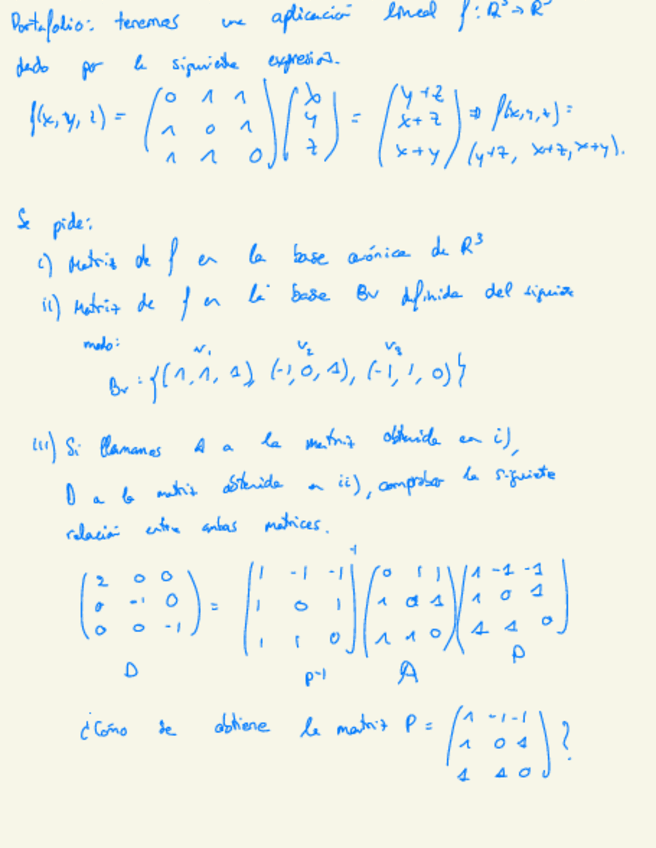 Portafolio: tenemos una aplicación lineal f: R³ → R³
dado por la siguiente expresión.
f(x, y, z) = (0 1 1; 1 0 1; 1 1 0) (x; y; z) = (y+z; x+z; x+y) ⇒ f(x,y,z) = (y+z, x+z, x+y).
Se pide:
i) Matriz de f en la base canónica de R³
ii) Matriz de f en la base Bv definida del siguiente
modo:
v₁ v₂ v₃
Bv = {(1, 1, 1), (-1, 0, 1), (-1, 1, 0)}
iii) Si llamamos A a la matriz obtenida en i),
D a la matriz obtenida en ii), comprobar la siguiente
relación entre ambas matrices.
(2 0 0; 0 -1 0; 0 0 -1) = (1 -1 -1; 1 0 1; 1 1 0)⁻¹ (0 1 1; 1 0 1; 1 1 0) (1 -1 -1; 1 0 1; 1 1 0)
D P⁻¹ A P
¿Cómo se obtiene la matriz P = (1 -1 -1; 1 0 1; 1 1 0)?